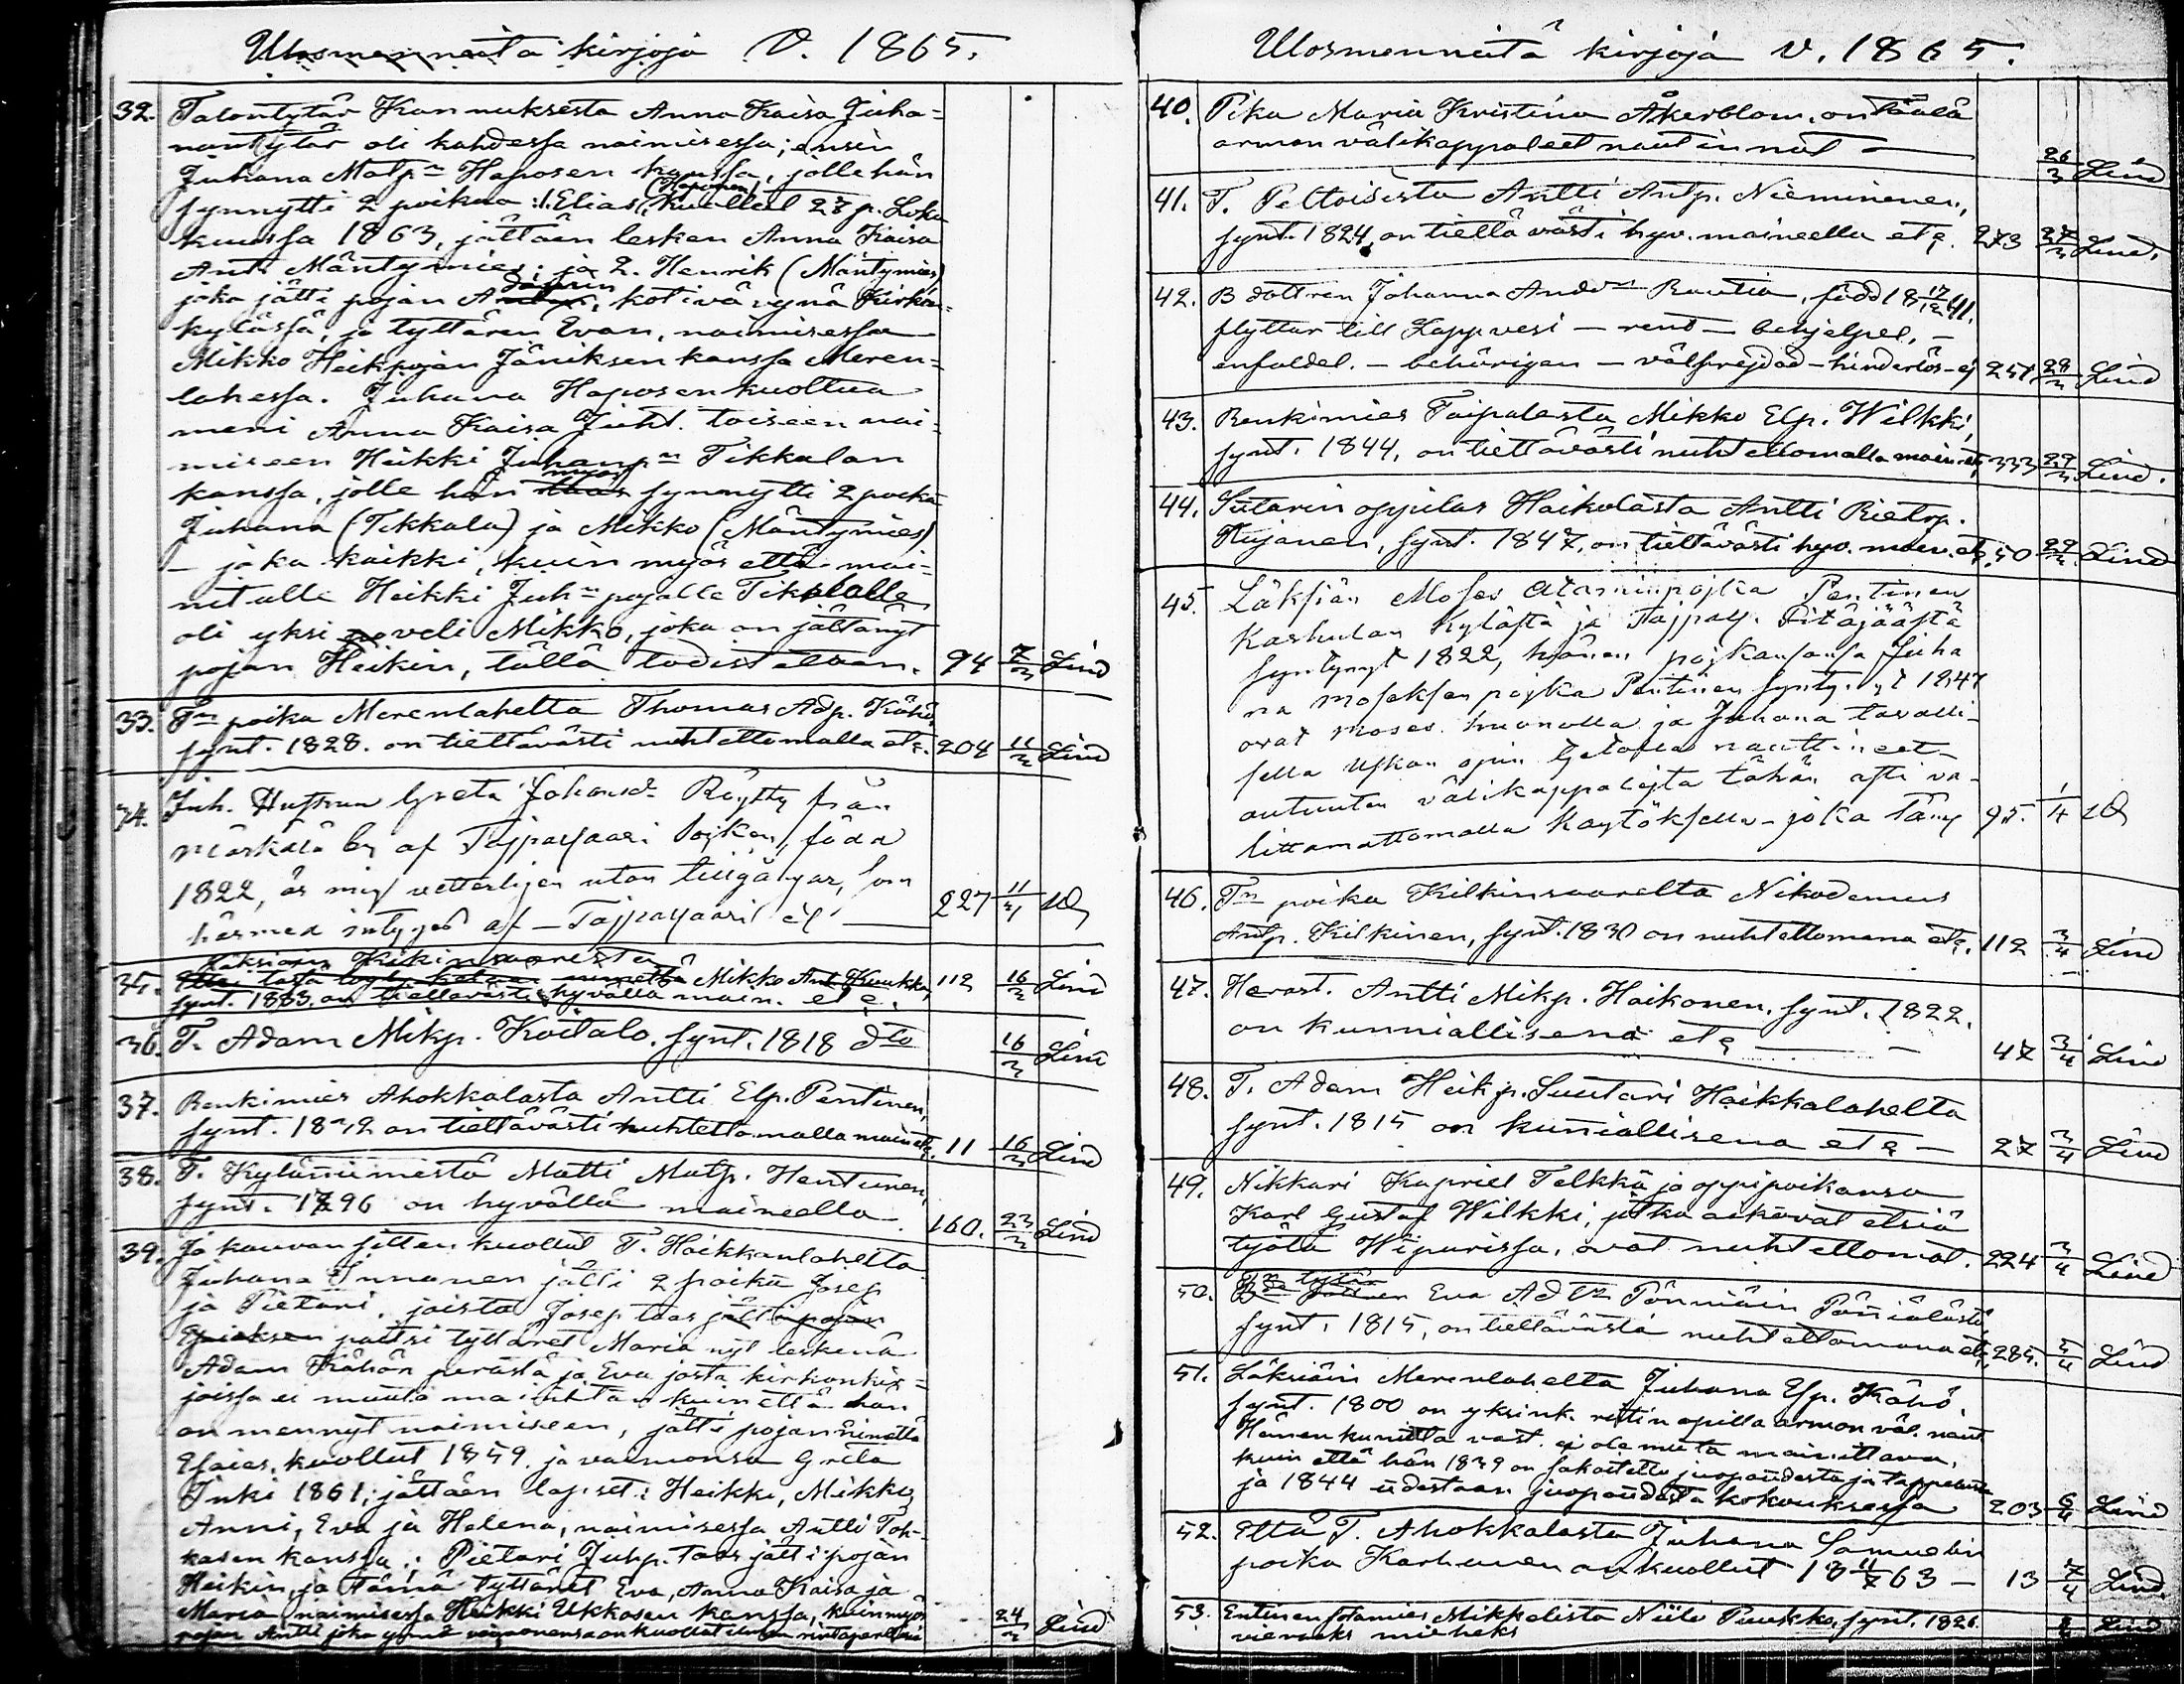 Ulosmenneitä kirjoja V. 1865.
32. Talontytär Kannuksesta Anna Kaisa Juha=
nantytär oli kahdessa naimisessa; ensin
Juhana Matp:n Haposen kanssa, jolle hän
synnytti 2 poikaa: 1. Elias (Haponen) kuollut 28 p. Loka
kuussa 1863, jättäen lesken Anna Kaisa
Ant. Mäntymies; ja 2. Henrik (Mäntymies)
joka jätti pojan, kotivävynä Kirkon=
kylässä, ja tyttären Evan, naimisessa
Mikko Heikpojan Jäniksen kanssa Meren=
lahessa. Juhana Haposen kuoltua
meni Anna Kaisa Juht. toiseen nai=
miseen Heikki Juhanp:n Tikkalan
kanssa, jolle hän myös synnytti 2 poikaa
Juhana (Tikkala) ja Mikko (Mäntymies)
– joka kaikki, kuin myös että mai=
nitulle Heikki Juh:n pojalle Tikkalalle
oli yksi veli Mikko, joka on jättänyt
pojan Heikin, tällä todistetaan. 94 7/3 Lind
33. T:n poika Merenlahelta Thomas Adp. Kähö,
synt. 1828. on tiettävästi nuhtettomalla etc. 204 11/3 Lind
34. Inh. Hustrun Greta Johansd:r Röytty från
Märkälä by af Taipalsaari Socken, född
1822, är mig vetterligen utan tillgångar, som
härmed intygas af – Taipalsaari 227 11/3
35. Läksiäin Kilkinsaaresta
Mikko Ant. Kuukka, 112 16/3 Lind
synt. 1833. on tiettävästi hyvällä main. etc.
36. T. Adam Mikp. Koitalo. synt. 1818 dto 16/3 Lind
37. Renkimies Ahokkalasta Antti Elp. Pentinen,
synt. 1842 on tiettävästi nuhtettomalla main etc. 11 16/3 Lind
38. T. Kyläniemestä Matti Matp. Hentunen,
synt. 1796 on hyvällä maineella. 160. 23/3 Lind
39. Jo kauvan sitten kuollut T. Haikkanlahelta
Juhana Innanen jätti 2 poikaa Josep
ja Pietari, joista Josep taas jätti pojan
paitsi tyttäret Maria nyt leskenä
Adam Kähön perästä ja Eva josta kirkonkir=
joissa ei muuta mainittan kuin että hän
on mennyt naimiseen, jätti pojan nimeltä
Esaias, kuollut 1859. ja vaimonsa Greta
Inki 1861; jättäen lapset: Heikki, Mikko,
Anni, Eva ja Helena, naimisessa Antti Tok=
kasen kanssa; Pietari Juhp. taas jätti pojan
Heikin, ja tämä tyttäret Eva, Anna Kaisa ja
Maria naimisessa Heikki Ukkosen kanssa, kuin myös
pojan Antti joka 24/3 Lind
Ulosmenneitä kirjoja V. 1865.
40. Pika Maria Kristina Åkerblom, on täälä
armon välikappaleet nautinnut – 26/3 Lind
41. T. Peltoisista Antti Antp. Nieminenen,
synt. 1824, on tiettävästi hyv. maineella etc. 273 27/3 Lind.
42. B dottren Johanna And:dr Rautia, född 18 17/12 41.
flyttar till Lappvesi – rent – behjelpel. –
enfaldel. – behörigen – välfrejdad – hinderlös – ej 251 28/3 Lind
43. Renkimies Taipalesta Mikko Elp. Wilkki,
synt. 1844, on tiettävästi nuhtettomalla main. etc. 333 29/3 Lind.
44. Sutarin oppilas Haikolasta Antti Pietrp.
Kujanen, synt. 1847, on tiettävästi hyv. main. etc. 50 29/3 Lind
45. Läksiän Moses Ataminpojka Pentinen
Karhulan Kylästä ja Taipals. Pitäjäästä
syntynyt 1822, hänen pojkansansa Juha
na Moseksen pojka Pentinen syntynyt 1847
ovat Moses huonolla ja Juhana tavalli-
sella Uskon opin tietolla nauttineet
autuuten välikappalejta tähän asti va-
littamattomalla Kaytöksella – joka täny 95. 1/4
46. T:n poika Kilkinsaarelta Nikodemus
Antp. Kilkinen, synt. 1830 on nuhtettomana etc. 112 3/4 Lind
47. Herast. Antti Mikp. Haikonen, synt. 1822.
on kunniallisena etc – 47 3/4 Lind
48. T. Adam Heikp. Suutari Haikkalahelta
synt. 1815 on kunniallisena etc – 27 3/4 Lind
49. Nikkari Kapriel Telkkä ja oppipoikansa
Karl Gustaf Wilkki, jotka aikovat etsiä
työtä Wipurissa, ovat nuhtettomat. 224 3/4 Lind
50. T:n tytär Eva Ad t:r Pönniäin Pöniälästä,
synt. 1815, on tiettävästä nuhtettomana etc. 285. 5/4 Lind
51. Läksiäin Merenlahelta Juhana Esp. Kähö,
synt. 1800 on yksink. ristin opilla armon väl. naut.
Hänen kunitta vast. ei ole muuta mainittava,
kuin että hän 1839 on sakoitettu juopaudesta ja tappelusta
ja 1844 uudestaan juopaudesta kokouksessa 203 6/4 Lind
52. Että T. Ahokkalasta Juhana Samuelin
poika Karhunen on kuollut 18 11/7 63 – 13 7/4 Lind.
53. Entinen sotamies Mikkelistä Niilo Puukko, synt. 1826.
vieraaks mieheks Lind